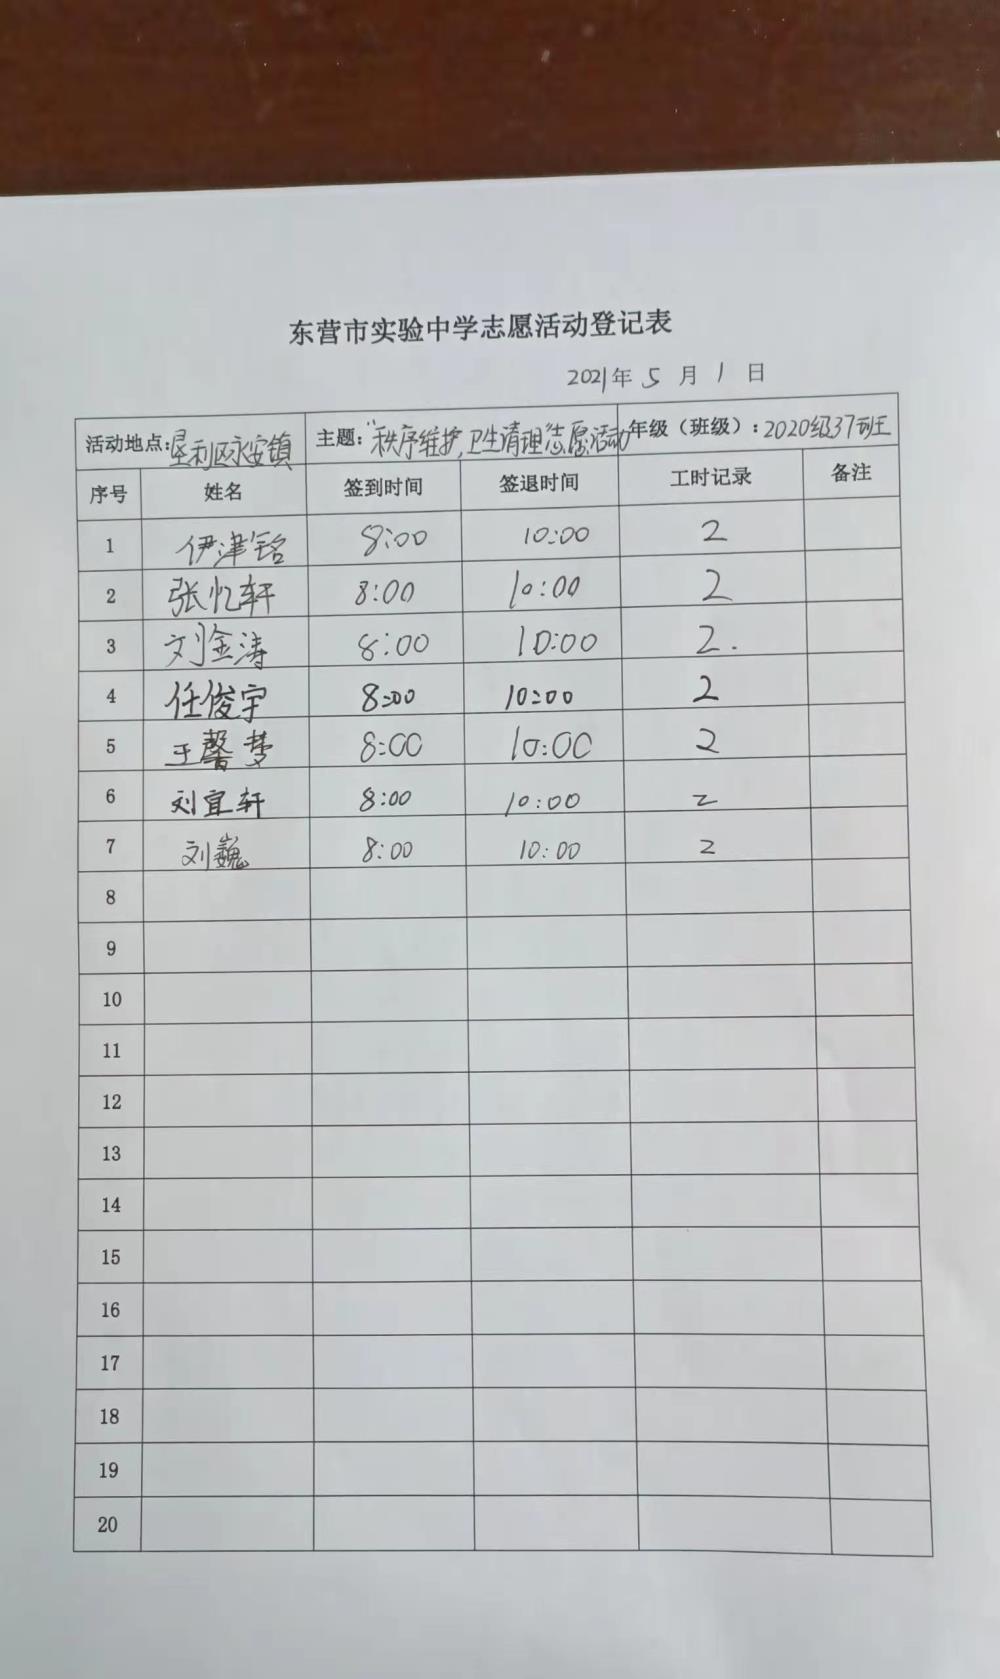 东营市实验中学志愿活动登记表
2021年 5 月 1 日
活动地点:垦利区永安镇 主题:"秩序维护,卫生清理"志愿活动 年级(班级):2020级37班
序号 姓名 签到时间 签退时间 工时记录 备注
1 伊津铭 8:00 10:00 2
2 张忆轩 8:00 10:00 2
3 刘金涛 8:00 10:00 2.
4 任俊宇 8:00 10:00 2
5 王馨梦 8:00 10:00 2
6 刘宜轩 8:00 10:00 2
7 刘巍 8:00 10:00 2
8
9
10
11
12
13
14
15
16
17
18
19
20